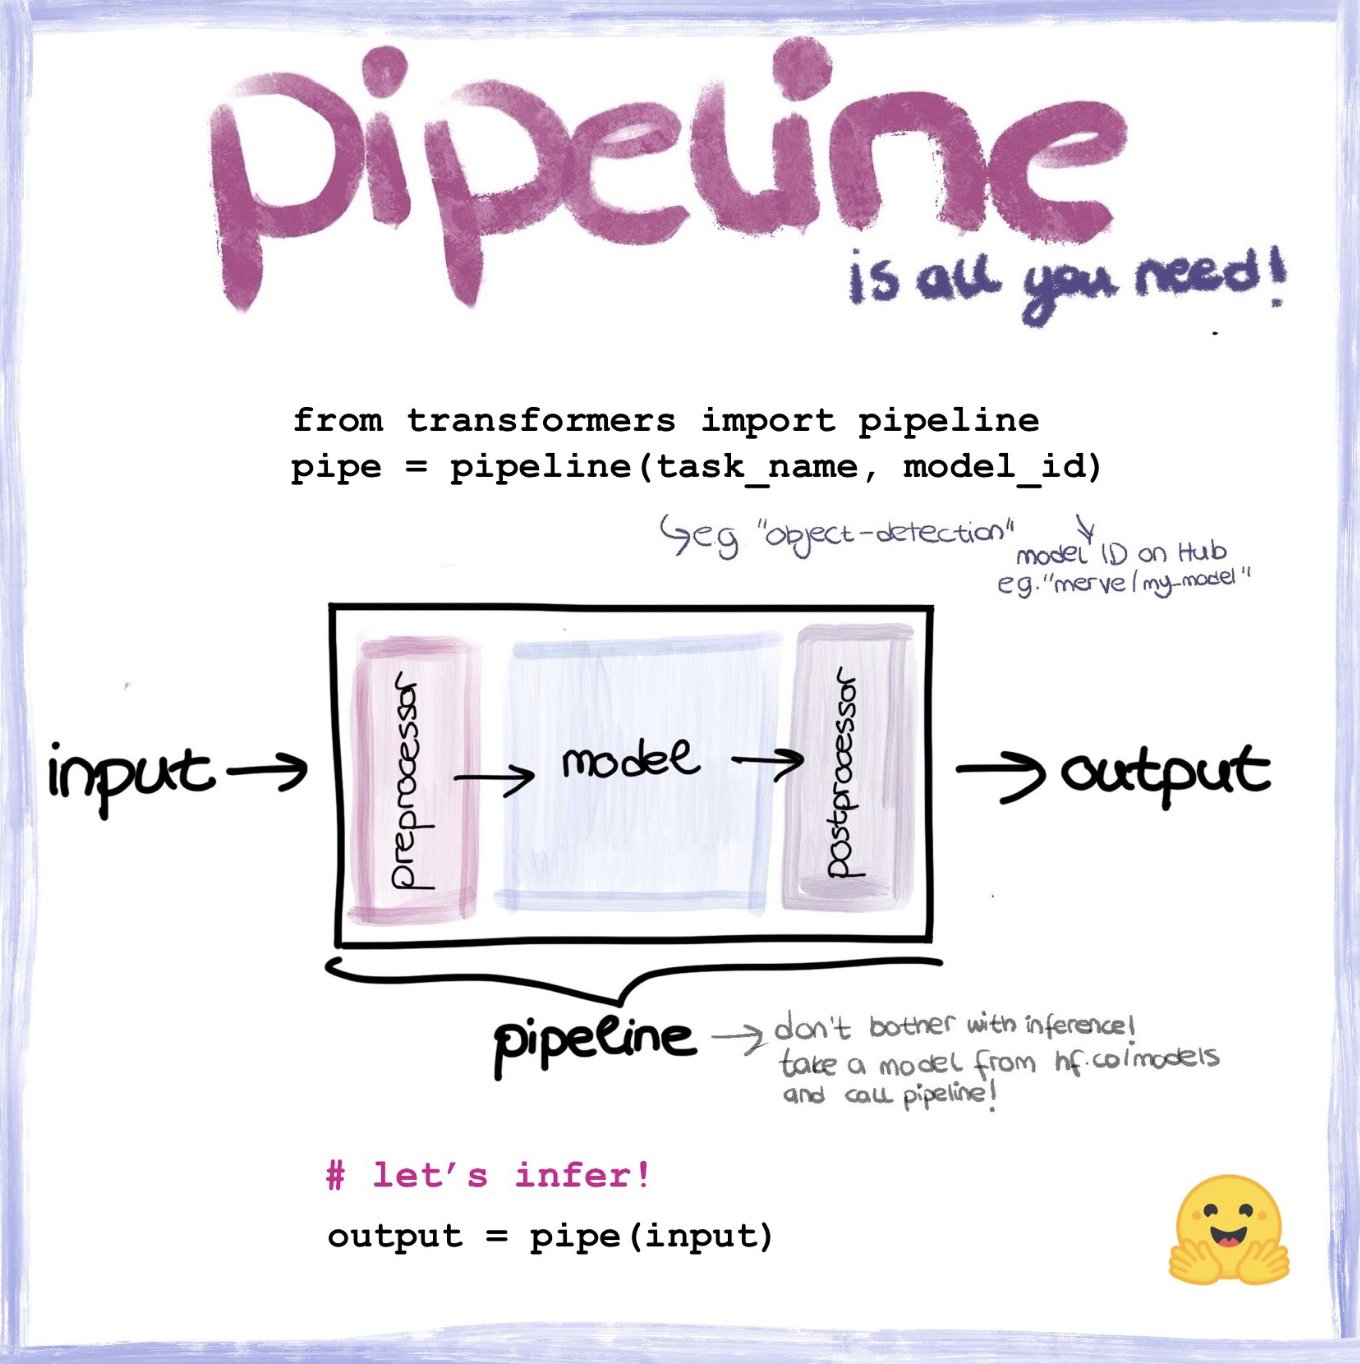 pipeline
is all you need!
from transformers import pipeline
pipe = pipeline(task_name, model_id)
e.g "object-detection"
model ID on Hub
eg."merve/my_model"
input
preprocessor
model
postprocessor
output
pipeline
don't bother with inference!
take a model from hf.co/models
and call pipeline!
# let's infer!
output = pipe(input)